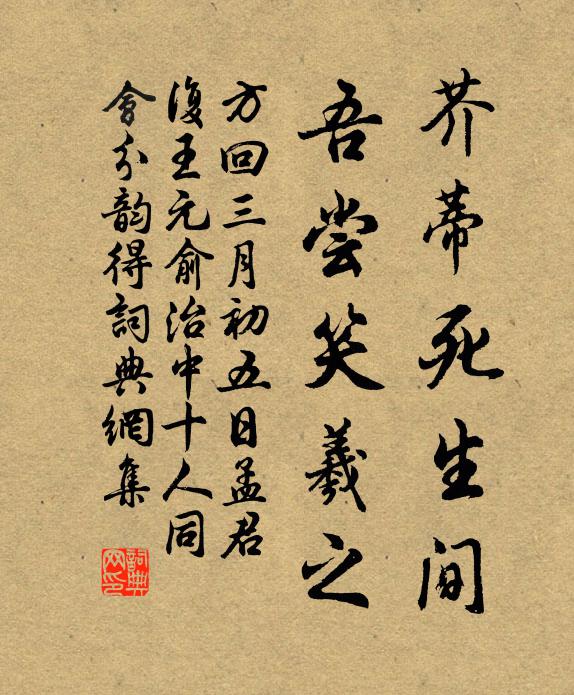 芥蒂死生间
吾尝笑羲之
方回三月初五日孟君
復王元俞治中十人同
會分韵得詞典網集
詞典網印